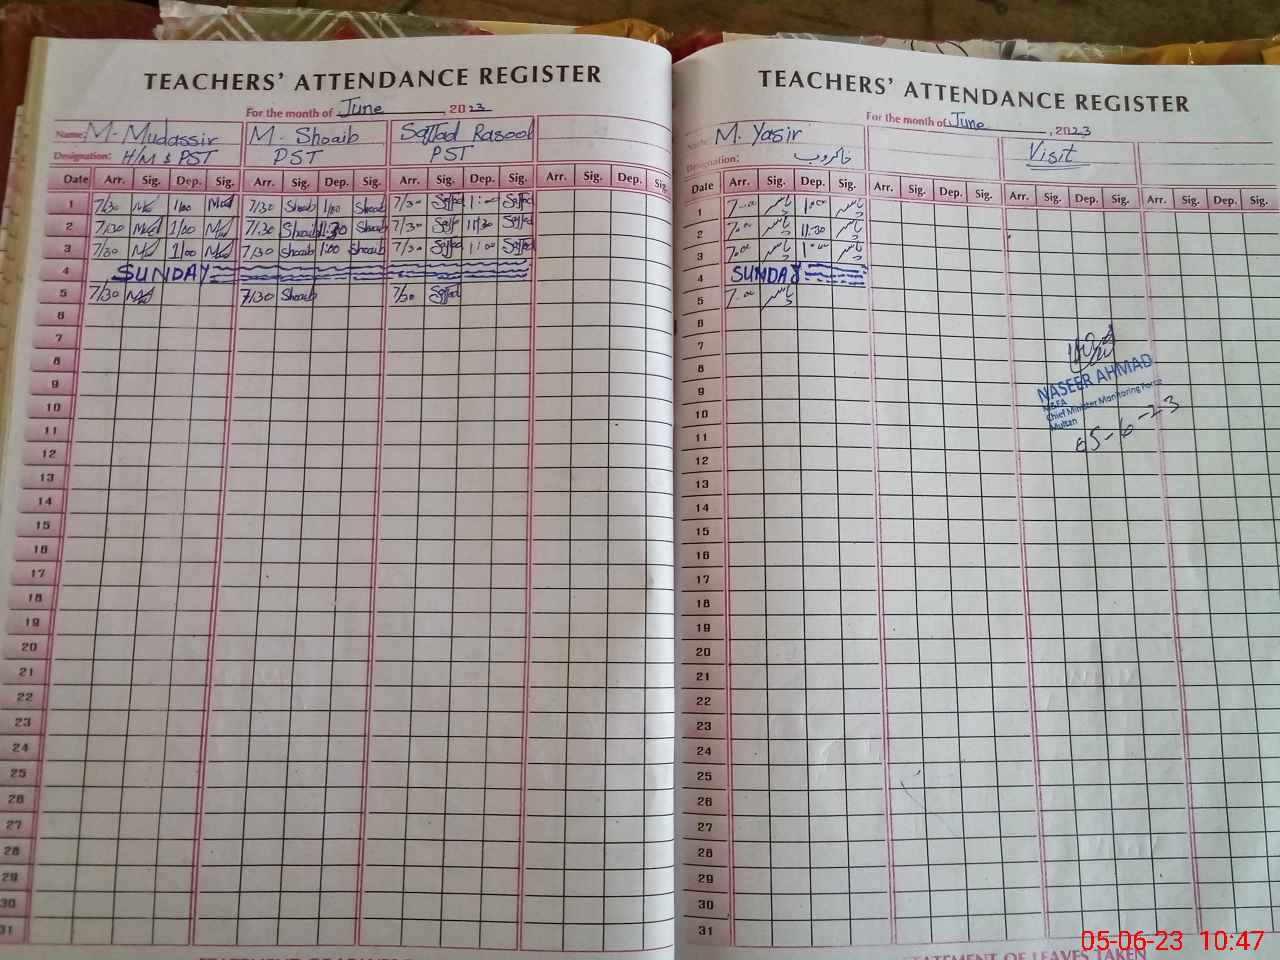 TEACHERS' ATTENDANCE REGISTER
For the month of June 2023
Name: M. Mudassir M. Shoaib Sajjad Rasool
Designation: H/M & PST PST PST
Date Arr. Sig. Dep. Sig. Arr. Sig. Dep. Sig. Arr. Sig. Dep. Sig. Arr. Sig. Dep. Sig.
1 7/30 1/00 7/30 Shoaib 1/00 Shoaib 7/30 1:00
2 7/30 1/00 7/30 Shoaib 11:30 Shoaib 7/30 11/30
3 7/30 1/00 7/30 Shoaib 1:00 Shoaib 7/30 1:00
4 SUNDAY
5 7/30 7/30 Shoaib 7/30
6
7
8
9
10
11
12
13
14
15
16
17
18
19
20
21
22
23
24
25
26
27
28
29
30
31
TEACHERS' ATTENDANCE REGISTER
For the month of June, 2023
Name: M. Yasir Visit
Designation: خاکروب
Date Arr. Sig. Dep. Sig. Arr. Sig. Dep. Sig. Arr. Sig. Dep. Sig. Arr. Sig. Dep. Sig.
1 7:00 یاسر 1:00 یاسر
2 7:00 یاسر 11:30 یاسر
3 7:00 یاسر 1:00 یاسر
4 SUNDAY
5 7:00 یاسر
6
7
8
9
10
11
12
13
14
15
16
17
18
19
20
21
22
23
24
25
26
27
28
29
30
31
NASEER AHMAD
M&EA
Chief Minister Monitoring Force
Multan
05-6-23
STATEMENT OF LEAVES TAKEN
05-06-23 10:47